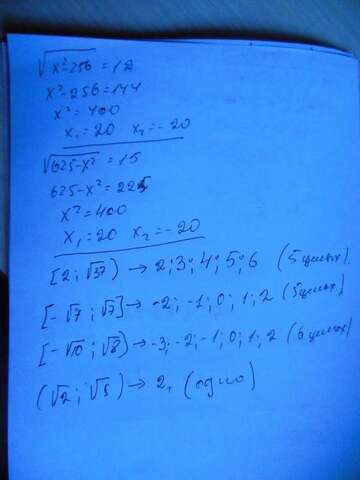 √x²-256 = 12
x²-256 = 144
x² = 400
x₁ = 20 x₂ = -20
√625-x² = 15
625-x² = 225
x² = 400
x₁ = 20 x₂ = -20
[2; √37) → 2; 3; 4; 5; 6 (5 целых)
[-√7; √7] → -2; -1; 0; 1; 2 (5 целых)
[-√10; √8) → -3; -2; -1; 0; 1; 2 (6 целых)
(√2; √5) → 2, (одно)